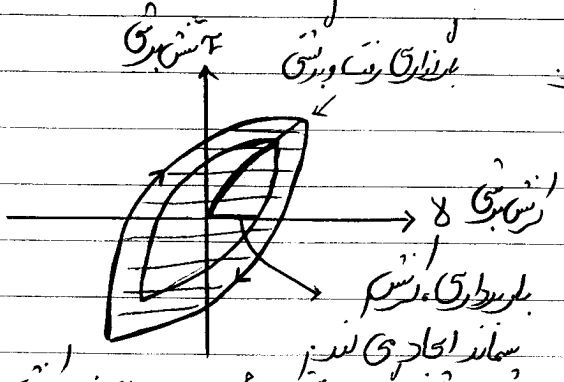 تنش برشی τ
بارگذاری رفت و برگشتی
کرنش برشی γ
باربرداری، کرنش
پسماند ایجاد می کند: